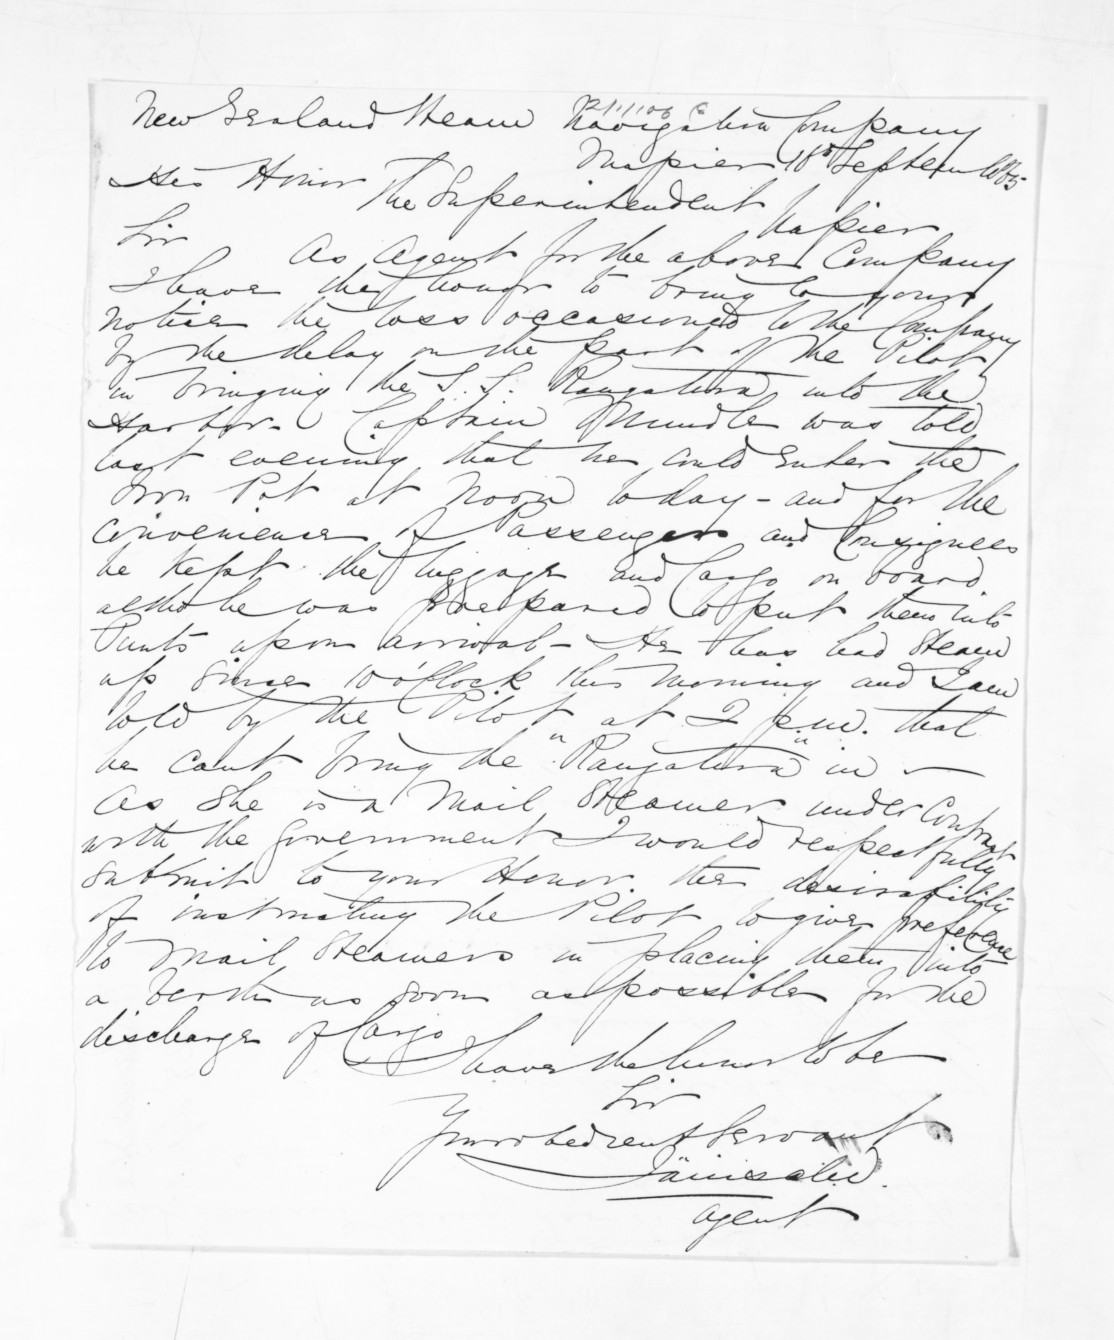 New Zealand Steam Navigation Company
Napier 18th September 1865
His Honor
The Superintendent
Napier
Sir
As Agent for the above Company
I have the honor to bring to your
notice the loss occasioned to the Company
by the delay on the part of the Pilot
in bringing the S.S. Rangatira into the
Harbor - Captain Mundle was told
last evening that he could enter the
Iron Pot at Noon today - and for the
convenience of Passengers and Consignees
he kept the luggage and Cargo on board
altho he was prepared to put them into
Punts upon arrival - He has had steam
up since 10 o'Clock this morning and I am
told by the Pilot at 2 p.m. that
he cant bring the "Rangatira" in -
As she is a Mail Steamer under Contract
with the Government I would respectfully
submit to your Honor the desirability
of instructing the Pilot to give preference
to Mail Steamers in placing them into
a berth as soon as possible for the
discharge of Cargo
I have the honor to be
Sir
Your obedient Servant
Agent